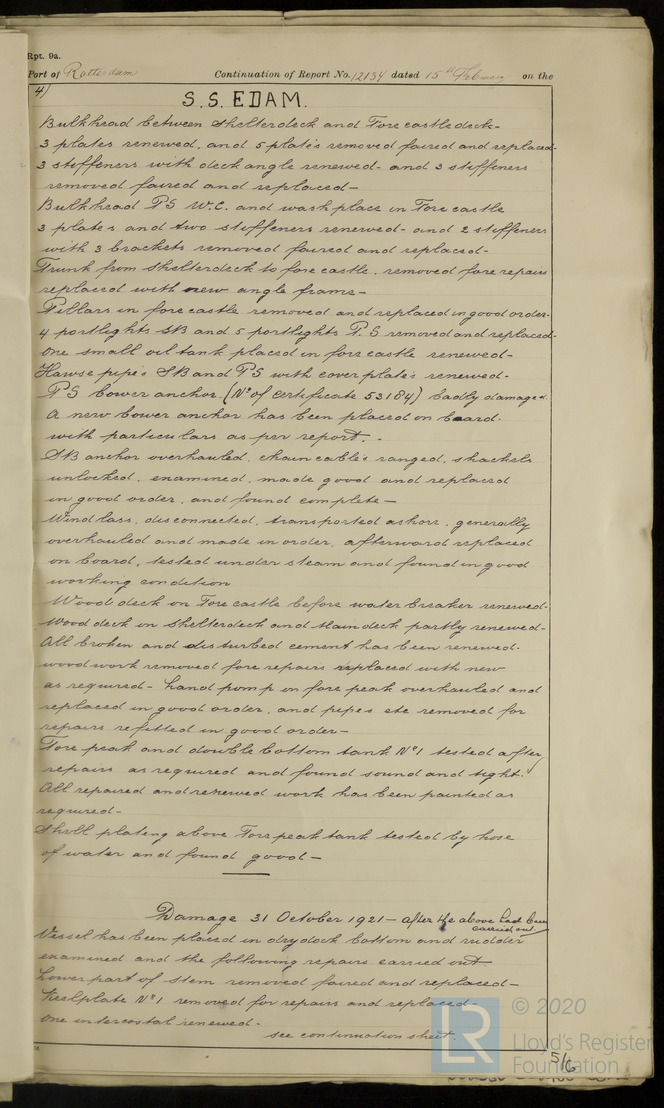 Rpt. 9a.
Port of Rotterdam Continuation of Report No. 12134 dated 15th February on the
4)
S.S. EDAM.
Bulkhead between shelterdeck and Forecastledeck-
3 plates renewed, and 5 plates removed faired and replaced-
3 stiffeners with deck angle renewed- and 3 stiffeners
removed faired and replaced-
Bulkhead PS W.C. and washplace in Forecastle
3 plates and two stiffeners renewed- and 2 stiffeners
with 3 brackets removed faired and replaced-
Trunk from shelterdeck to forecastle, removed fore repairs
replaced with new angle frame-
Pillars in forecastle removed and replaced in good order-
4 portlights SB and 5 portlights P.S removed and replaced-
One small oil tank placed in forecastle renewed-
Hawse pipes SB and PS with cover plates renewed-
PS bower anchor (No of certificate 53184) badly damaged.
A new bower anchor has been placed on board.
with particulars as per report.
SB anchor overhauled, chain cables ranged, shackels
unlocked, examined, made good and replaced
in good order, and found complete-
Windlass, disconnected, transported ashore, generally
overhauled and made in order, afterward replaced
on board, tested under steam and found in good
working condition
Wood deck on Forecastle before waterbreaker renewed.
Wood deck in shelterdeck and Maindeck partly renewed-
All broken and disturbed cement has been renewed.
woodwork removed fore repairs replaced with new
as required- hand pomp in fore peak overhauled and
replaced in good order, and pipes etc removed for
repairs refitted in good order-
Fore peak and double bottom tank No 1 tested after
repairs as required and found sound and tight.
All repaired and renewed work has been painted as
required-
Shell plating above Forepeak tank tested by hose
of water and found good-
Damage 31 October 1921- after the above had been
carried out
Vessel has been placed in drydock bottom and rudder
examined and the following repairs carried out
Lower part of stem removed faired and replaced-
Keelplate No 1 removed for repairs and replaced-
one intercostal renewed-
see continuation sheet.
LR
© 2020
Lloyd's Register
Foundation
5/6